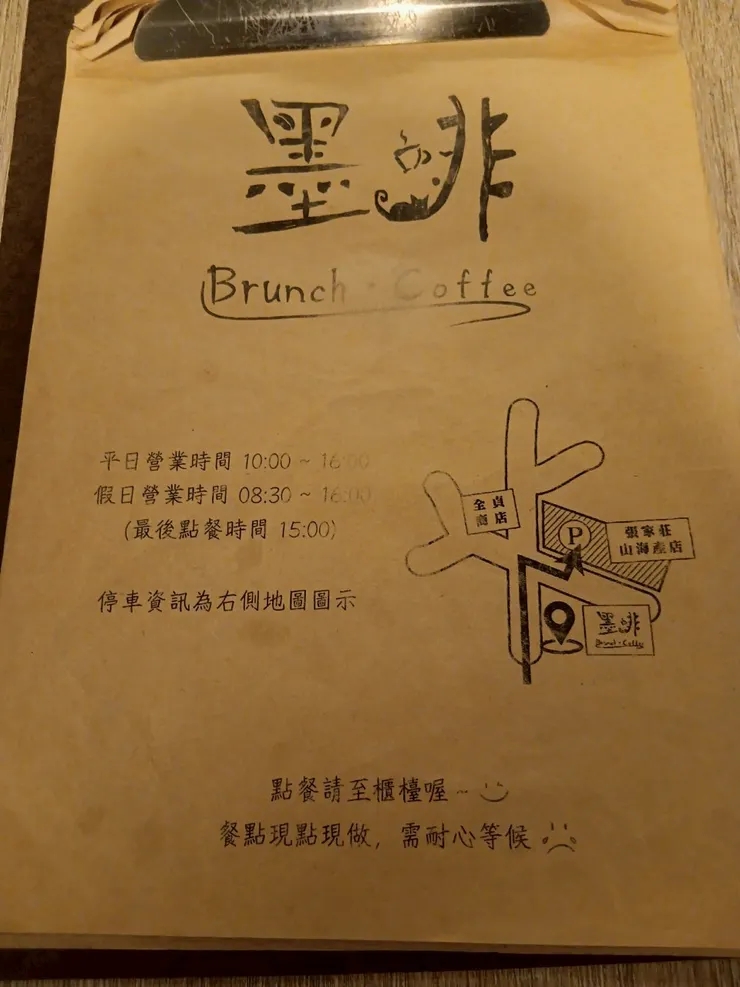 墨啡
Brunch · Coffee
平日營業時間 10:00 ~ 16:00
假日營業時間 08:30 ~ 16:00
(最後點餐時間 15:00)
停車資訊為右側地圖圖示
全貞
商店
P
張家莊
山海產店
墨啡
Brunch · Coffee
點餐請至櫃檯喔…
餐點現點現做, 需耐心等候